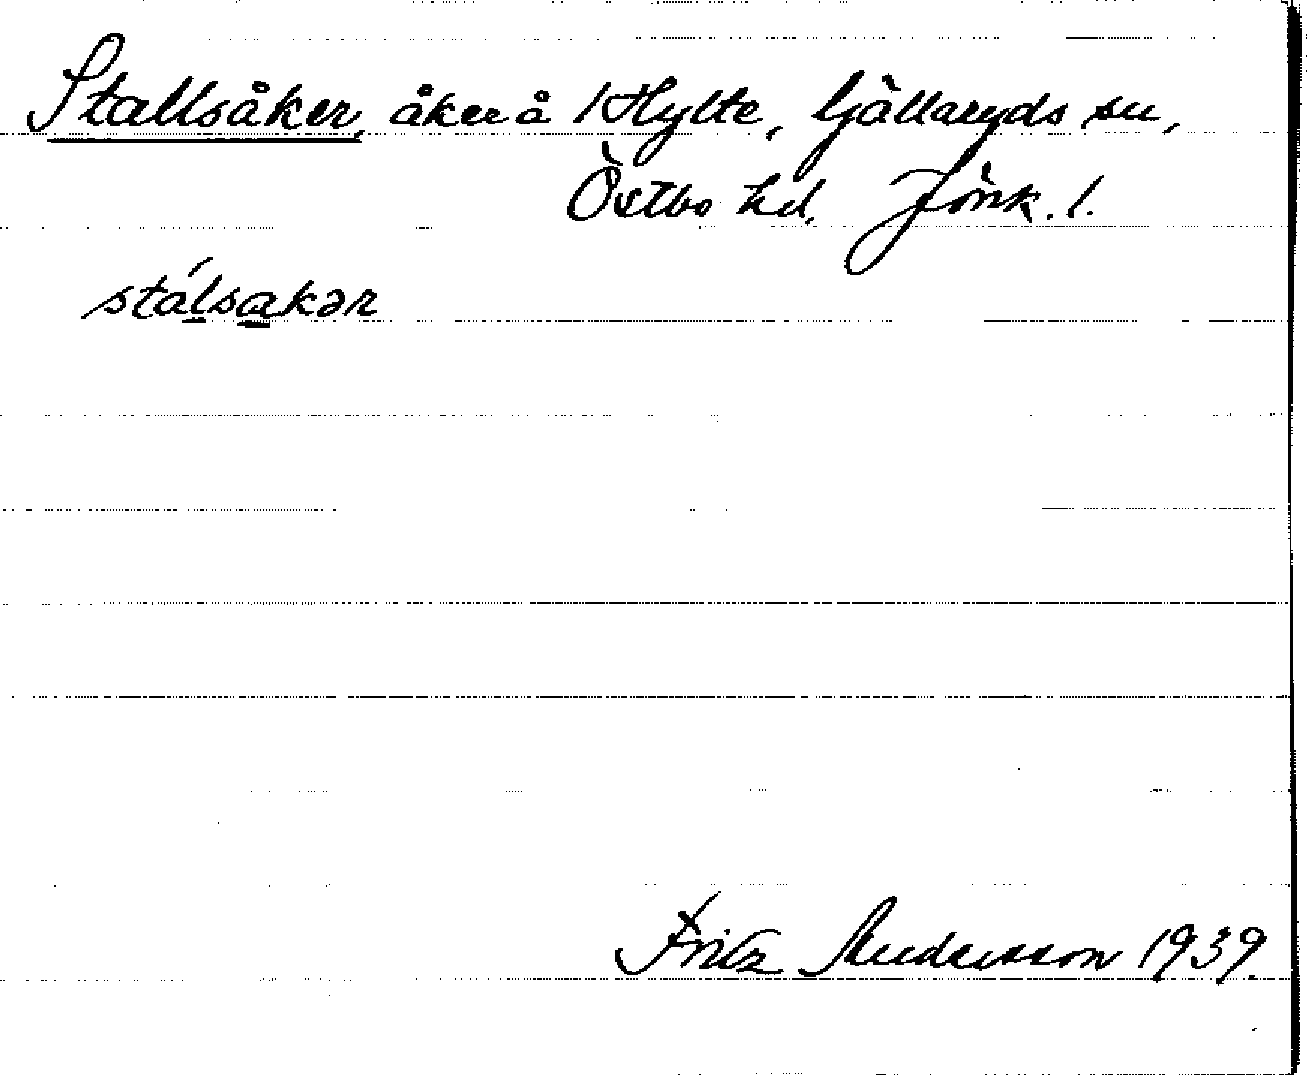 Stallsåker, åker å 1 Hylte, Gällaryds sn,
Östbo hd. Jönk. l.
stálsakər
Fritz Andersson 1939.